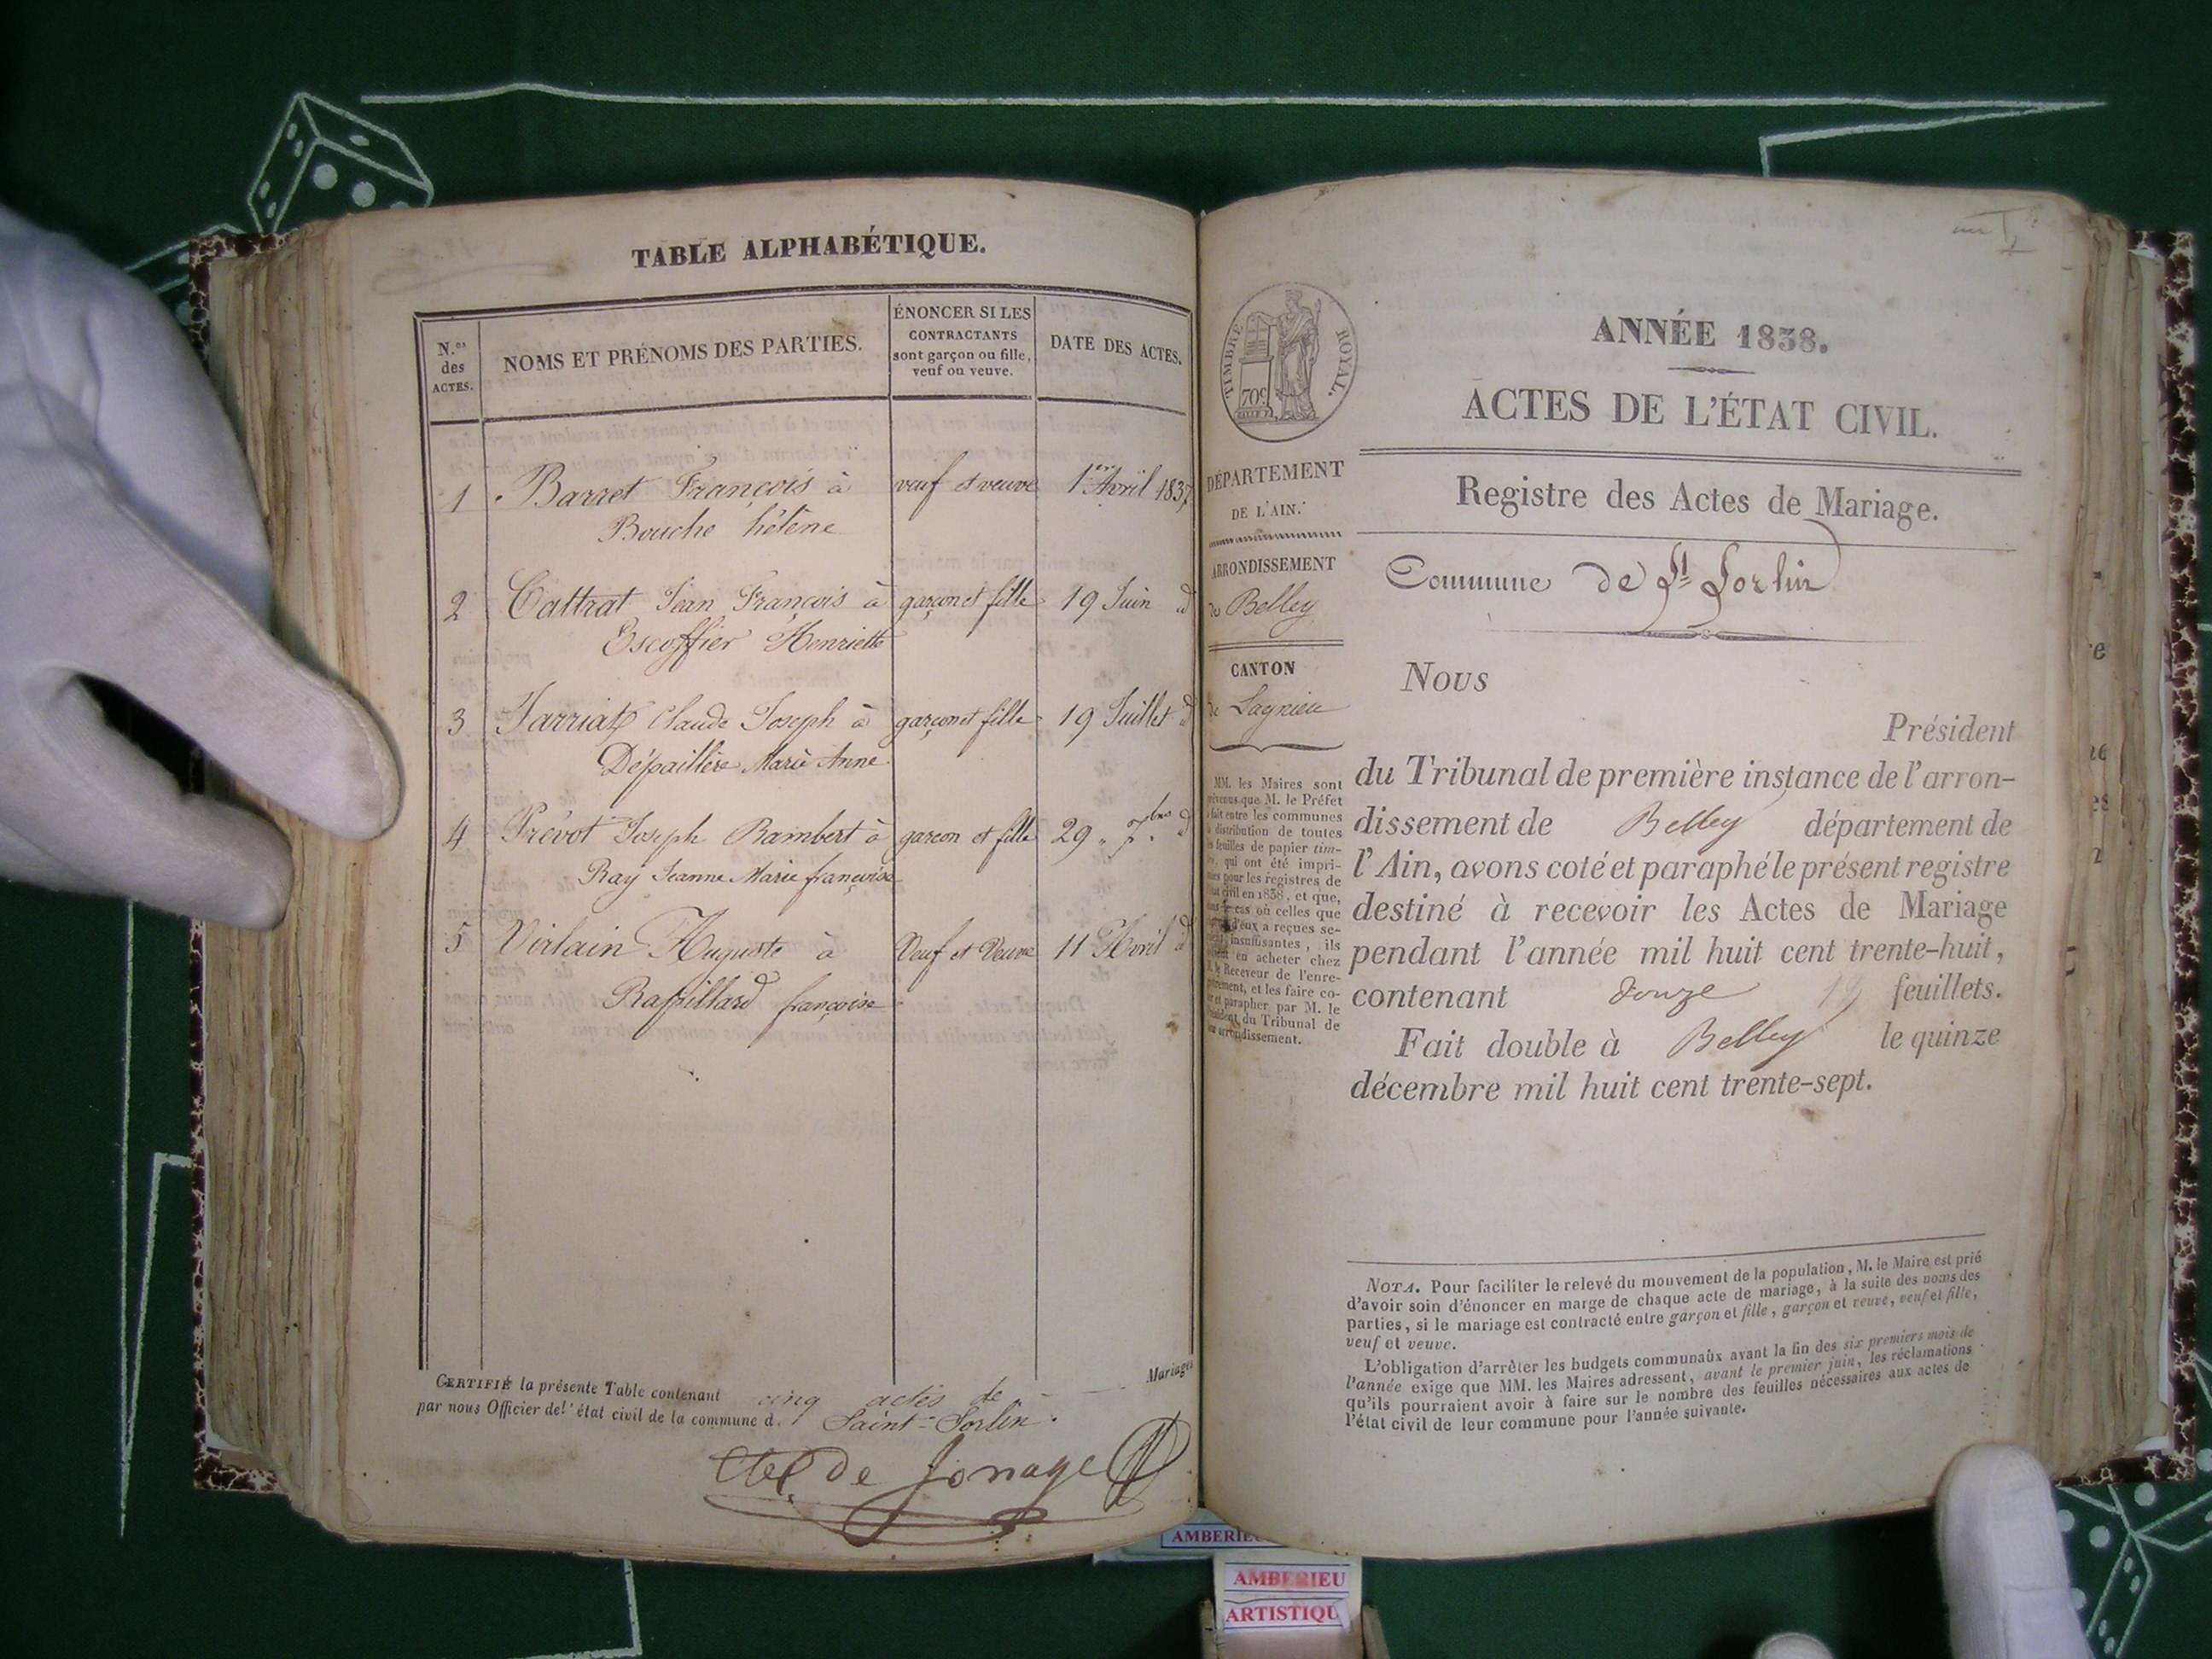 TABLE ALPHABÉTIQUE.
N.os des ACTES.
NOMS ET PRÉNOMS DES PARTIES.
ÉNONCER SI LES CONTRACTANTS sont garçon ou fille, veuf ou veuve.
DATE DES ACTES.
1 Barret François à veuf et veuve 1er Avril 1837
Bouche hélène
2 Cattrat Jean François à garçon et fille 19 Juin d
Escoffier Henriette
3 Jarriat Claude Joseph à garçon et fille 19 Juillet d
Dépaillère Marie Anne
4 Prévot Joseph Rambert à garçon et fille 29 7bre d
Ray Jeanne Marie françoise
5 Virlain Auguste à Veuf et Veuve 11 Avril d
Rapillard françoise
CERTIFIÉ la présente Table contenant cinq actes de Mariages
par nous Officier de l'état civil de la commune d. Saint-Sorlin.
de Jonage
TIMBRE ROYAL.
70c
DÉPARTEMENT
DE L'AIN.
ARRONDISSEMENT
de Belley
CANTON
de Lagnieu
MM. les Maires sont
prévenus que M. le Préfet
a fait entre les communes
la distribution de toutes
les feuilles de papier tim-
bré, qui ont été impri-
mées pour les registres de
l'état civil en 1838, et que,
dans le cas où celles que
d'eux a reçues se-
insuffisantes, ils
en acheter chez
M. le Receveur de l'enre-
gistrement, et les faire co-
ter et parapher par M. le
Président du Tribunal de
arrondissement.
ANNÉE 1838.
ACTES DE L'ÉTAT CIVIL.
Registre des Actes de Mariage.
Commune de St Sorlin
Nous
Président
du Tribunal de première instance de l'arron-
dissement de Belley département de
l'Ain, avons coté et paraphé le présent registre
destiné à recevoir les Actes de Mariage
pendant l'année mil huit cent trente-huit,
contenant douze 12 feuillets.
Fait double à Belley le quinze
décembre mil huit cent trente-sept.
NOTA. Pour faciliter le relevé du mouvement de la population, M. le Maire est prié
d'avoir soin d'énoncer en marge de chaque acte de mariage, à la suite des noms des
parties, si le mariage est contracté entre garçon et fille, garçon et veuve, veuf et fille,
veuf et veuve.
L'obligation d'arrêter les budgets communaux avant la fin des six premiers mois de
l'année exige que MM. les Maires adressent, avant le premier juin, les réclamations
qu'ils pourraient avoir à faire sur le nombre des feuilles nécessaires aux actes de
l'état civil de leur commune pour l'année suivante.
AMBERIEU
AMBERIEU
ARTISTIQU